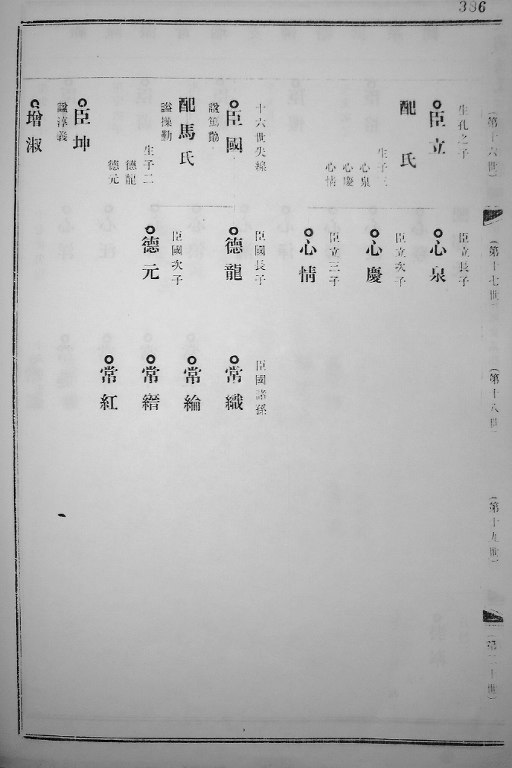 386
(第十六世)
(第十七世)
(第十八世)
(第十九世)
(第二十世)
生孔之子
臣立
配 氏
生子三
心泉
心慶
心情
十六世失線
臣國
諡篤勤
配馬氏
諡操勤
生子二
德龍
德元
臣坤
諡淳義
增淑
臣立長子
心泉
臣立次子
心慶
臣立三子
心情
臣國長子
德龍
臣國次子
德元
臣國諸孫
常織
常綸
常縉
常紅